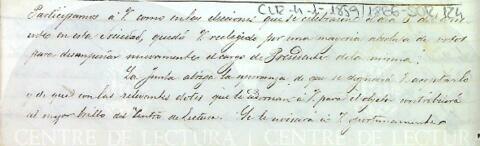 CLR-4-1-1859/1866-SOR,174
Participamos á V. como en las elecciones que se celebraron el dia 1 de
en esta Sociedad, quedó V. reelegido por una mayoria absoluta de votos
para desempeñar nuevamente el cargo de Presidente de la misma.
La Junta abriga la esperanza de que se dignará V. aceptarlo
y de que con las relevantes dotes que le adornan á V. para el objeto contribuirá
al mayor brillo del Centro de Lectura. Se le avisará á V. oportunamente
CENTRE DE LECTURA
CENTRE DE LECTURA